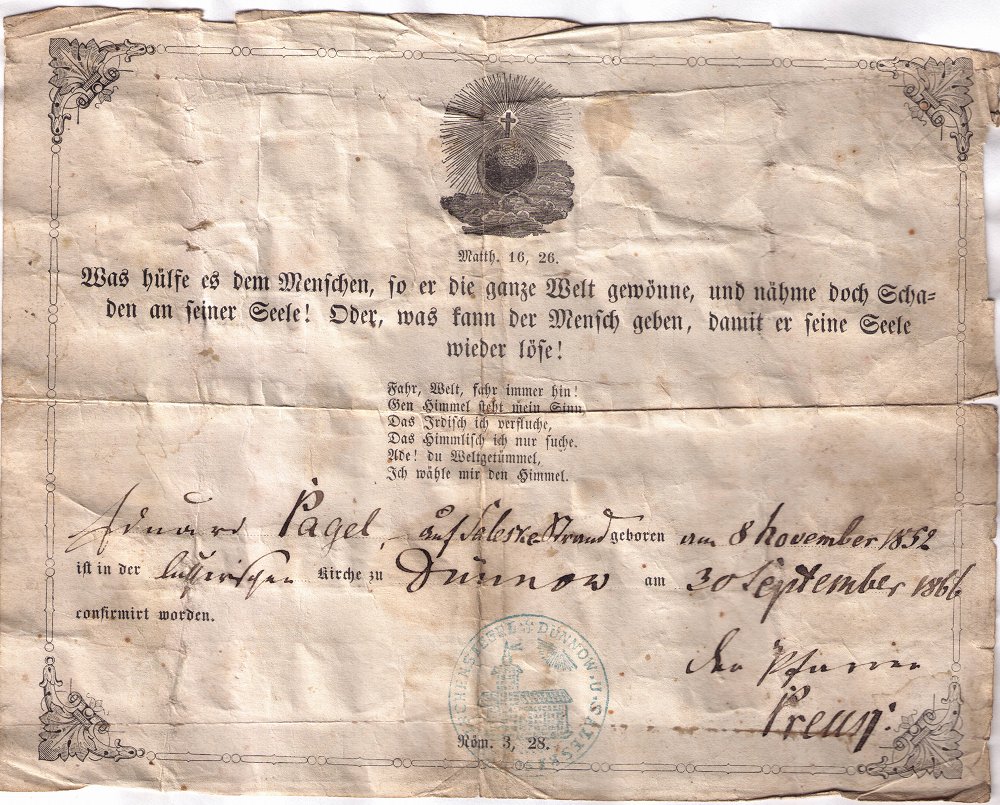 Matth. 16, 26.
Was hülfe es dem Menschen, so er die ganze Welt gewönne, und nähme doch Scha-
den an seiner Seele! Oder, was kann der Mensch geben, damit er seine Seele
wieder löse!
Fahr, Welt, fahr immer hin!
Gen Himmel steht mein Sinn,
Das Irdisch ich verfluche,
Das Himmlisch ich nur suche.
Ade! du Weltgetümmel,
Ich wähle mir den Himmel.
Eduard Pagel, auf Saleske Strand geboren am 8 November 1852
ist in der lutherischen Kirche zu Dünnow am 30 September 1866
confirmirt worden.
Der Pfarrer
Preuß.
KIRCHENSIEGEL DÜNNOW U. SALESKE
Röm. 3, 28.